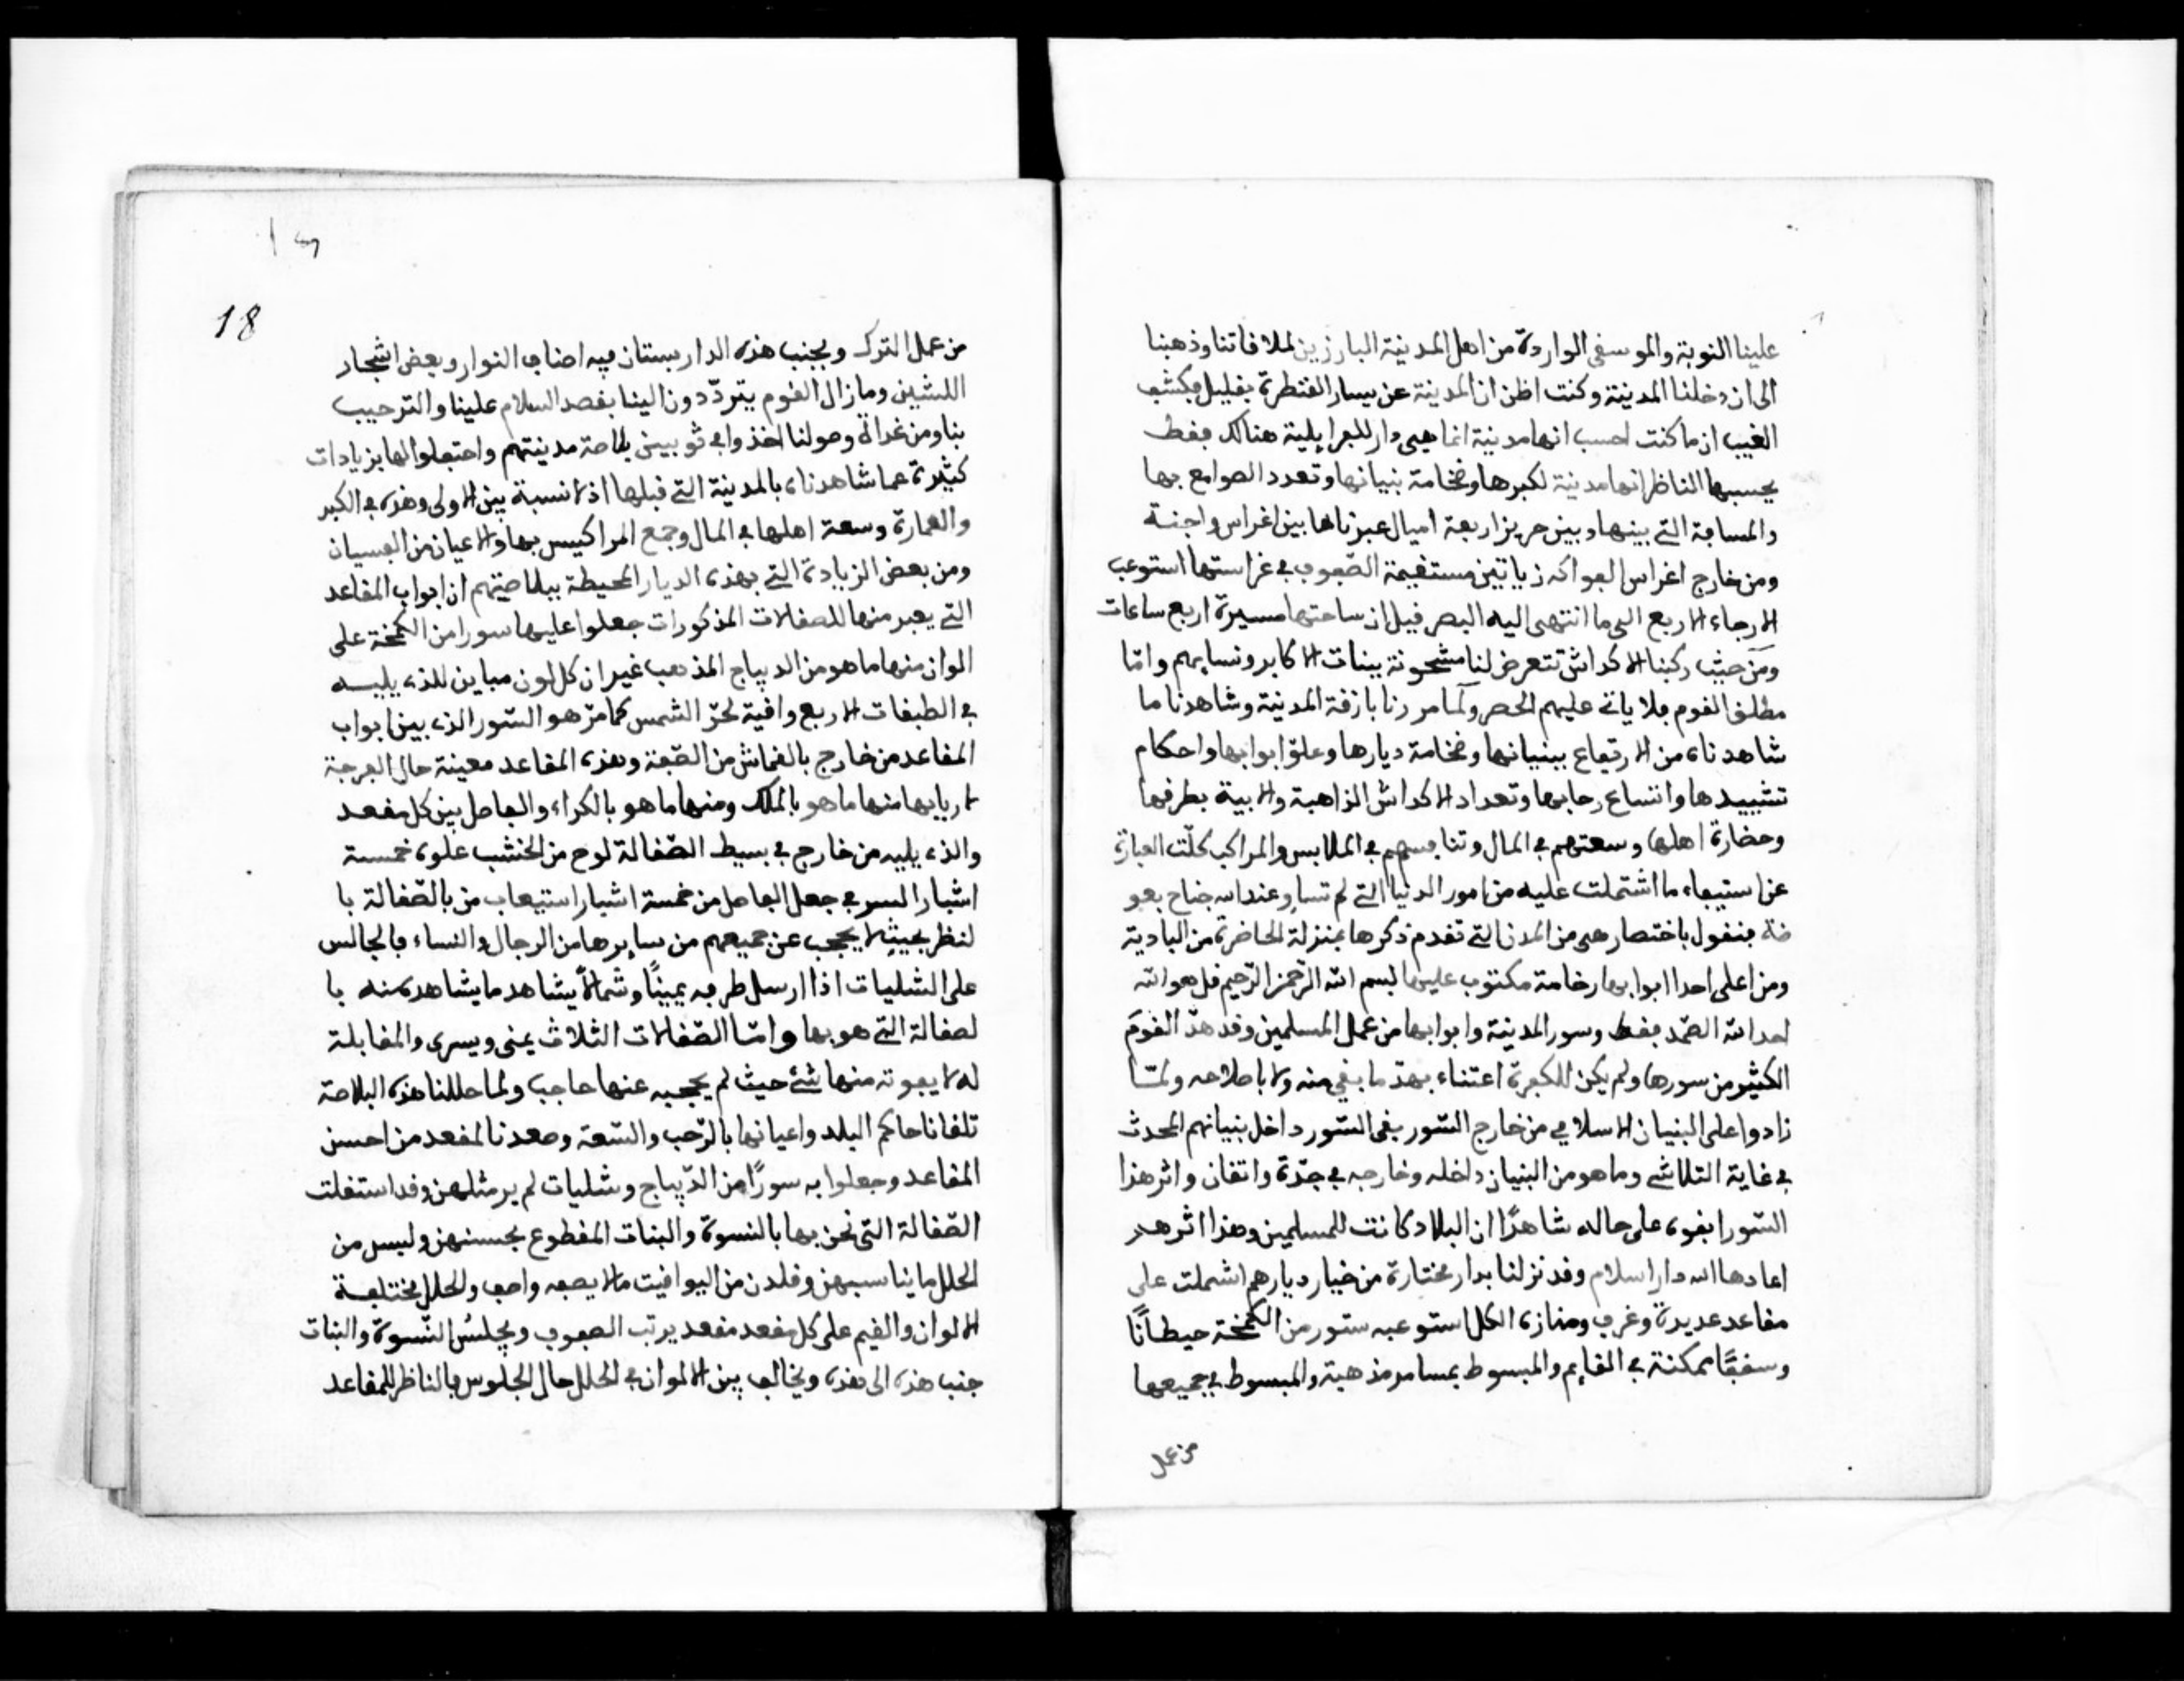 علينا النوبة والموسقى الواردة من اهل المدينة البارزين لملاقاتنا وذهبنا
الى ان دخلنا المدينة وكنت اظن ان المدينة عن يسار القنطرة بقليل فكشف
الغيب ان ما كنت احسب انها مدينة انما هي دار للفرايلية هنالك فقط
يحسبها الناظر انها مدينة لكبرها وضخامة بنيانها وتعدد الصوامع بها
والمسافة التي بينها وبين حريز اربعة اميال عبرناها بين اغراس واجنة
ومن خارج اغراس الفواكه زياتين مستقيمة الصّفوف في غراستها استوعب
الارجاء الاربع الى ما انتهى اليه البصر قيل ان ساحتها مسيرة اربع ساعات
ومن حيث ركبنا الاكداش تتعرض لنا مشحونة ببنات الاكابر ونسايهم وامّا
مطلق القوم فلا ياتي عليهم الحصر ولما مررنا بازقة المدينة وشاهدنا ما
شاهدناه من الارتفاع ببنيانها وضخامة ديارها وعلوّ ابوابها واحكام
تشييدها واتساع رحابها وتعداد الاكداش الذاهبة والايبة بطرقها
وحضارة اهلها وسعتهم في المال وتنافسهم في الملابس والمراكب كلّت العبارة
عن استيفاء ما اشتملت عليه من امور الدنيا التي لم تساو عند الله جناح بعو
ضة فنقول باختصار هي من المدن التي تقدم ذكرها بمنزلة الحاضرة من البادية
ومن اعلى احدا ابوابها رخامة مكتوب عليها بسم الله الرّحمن الرّحيم قل هو الله
احد الله الصّمد فقط وسور المدينة وابوابها من عمل المسلمين وقد هدّ القوم
الكثير من سورها ولم يكن للكفرة اعتناء بهدّ ما بقي منه ولا باصلاحه ولمّا
زادوا على البنيان الاسلامي من خارج السّور بقى السّور داخل بنيانهم المحدث
في غاية التلاشي وما هو من البنيان داخله وخارجه في جدّة واتقان واثر هذا
السّور ابقوه على حاله شاهدًا ان البلاد كانت للمسلمين وهذا اثرهم
اعادها الله دار اسلام وقد نزلنا بدار مختارة من خيار ديارهم اشملت على
مقاعد عديدة وغرف ومنازه الكل استوعبه ستور من الكمخة حيطانًا
وسقفًا ممكنة في القايم والمبسوط بمسامر مذهبة والمبسوط في جميعها
من عمل
18
من عمل الترك وبجنب هذه الدار بستان فيه اصناف النوار وبعض اشجار
اللشين وما زال القوم يتردّدون الينا بقصد السلام علينا والترحيب
بنا ومن غد وصولنا اخذوا في ثوبيين بلاصة مدينتهم واحتفلوا لها بزيادات
كثيرة عما شاهدناه بالمدينة التي قبلها اذ لا نسبة بين الاولى وهذه في الكبر
والعمارة وسعة اهلها في المال وجمع المراكيس بها والاعيان من الفسيان
ومن بعض الزيادة التي بهذه الديار المحيطة ببلاصتهم ان ابواب المقاعد
التي يعبر منها للصقلات المذكورات جعلوا عليها سورا من الكمخة على
الوان منها ما هو من الديباج المذهب غير ان كل لون مباين للذي يليه
في الطبقات الاربع واقية لحرّ الشمس كما مرّ هو السّور الذي بين ابواب
المقاعد من خارج بالقماش من الصّفة وهذه المقاعد معينة حال الفرجة
لاربابها منها ما هو بالملك ومنها ما هو بالكراء والفاصل بين كل مقعد
والذي يليه من خارج في بسيط الصّقالة لوح من الخشب علوه خمسة
اشبار السر في جعل الفاصل من خمسة اشبار استيعاب من بالصّقالة با
لنظر بحيث لا يحجب عن جميعهم من سايرها من الرجال والنساء فالجالس
على الشليات اذا ارسل طرفه يمينًا وشمالًا يشاهد ما يشاهد منه با
لصقالة التي هو بها وامّا الصّقالات الثلاث يمنى ويسرى والمقابلة
له لا يفوته منها شيء حيث لم يحجبه عنها حاجب ولما حللنا هذه البلاصة
تلقانا حاكم البلد واعيانها بالرّحب والسّعة وصعدنا لمقعد من احسن
المقاعد وجعلوا به سورًا من الدّيباج وشليات لم ير مثلهن وقد استقلت
الصّقالة التي نحن بها بالنسوة والبنات المقطوع بحسنهن ولبسن من
الحلل ما يناسبهن وقلدن من اليواقيت ما لا يصفه واصف والحلل مختلفة
الالوان والقيم على كل مقعد مقعد يرتب الصفوف ويجلس النّسوة والبنات
جنب هذه الى هذه ويخالف بين الالوان في الحلل حال الجلوس فالناظر للمقاعد